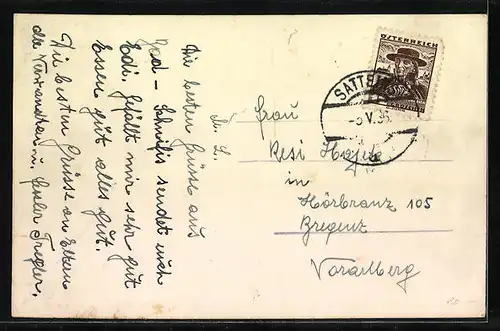 M. L.
Die besten Grüsse aus
Bad - Schnifis sendet euch
Edi. Gefällt mir sehr gut
Essen gut alles gut.
Die besten Grüsse an Eltern
die Verwandten u.
ÖSTERREICH
SATTE
V. 36
Frau
Resi
in
Hörbranz 105
Bregenz
Vorarlberg